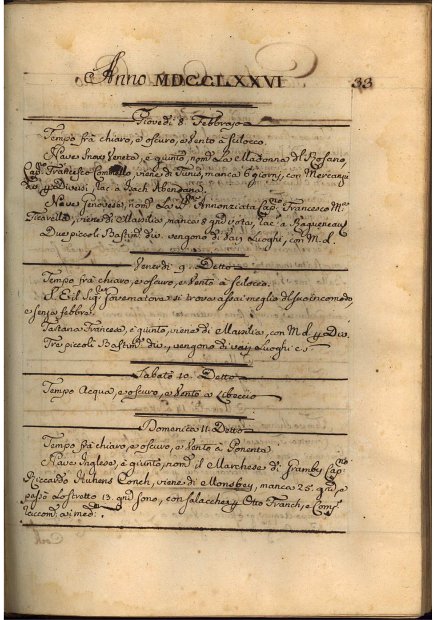 Anno MDCCLXXVI
33
Giovedi 8. Febbrajo
Tempo frà chiaro, e oscuro, e Vento à scilocco.
Nave Veneta, è quinto, nom. La Madonna del Rosario,
Capno Francesco Combatto, viene di Tunis, manca 6 giorni, con Mercanzi
e Diversi, rac. a Isach
Nave Genovese, nom. La SSma Annonziata Capno Francesco Ma
viene di Marsilia, manca 8 gni vota, rac. a
Due piccoli Bastimti div. vengono di varj Luoghi, con M. d.
Venerdi 9. Detto
Tempo frà chiaro, e oscuro, e Vento à scilocco.
S. Ecc. il Sigr Governatore si trova assai meglio del suo incomodo
e senza febbre.
Tartana Francese, è quinto, viene di Marsilia, con M. d. pr Div.
Tre piccoli Bastimti div., vengono di varj Luoghi c. s.
Sabato 10. Detto
Tempo Acqua, e oscuro, e Vento à Libeccio
Domenica 11. Detto
Tempo frà chiaro, e oscuro, e Vento à Ponente
Nave Inglese, è quinto, nom. il Marchese di Gramby Capno
Riccardo Ruhens Conch, viene di manca 25. gni, e
passò Lo stretto 13. gni sono, con salacche pr Otto Franch, e Compi
raccom. a i medmi